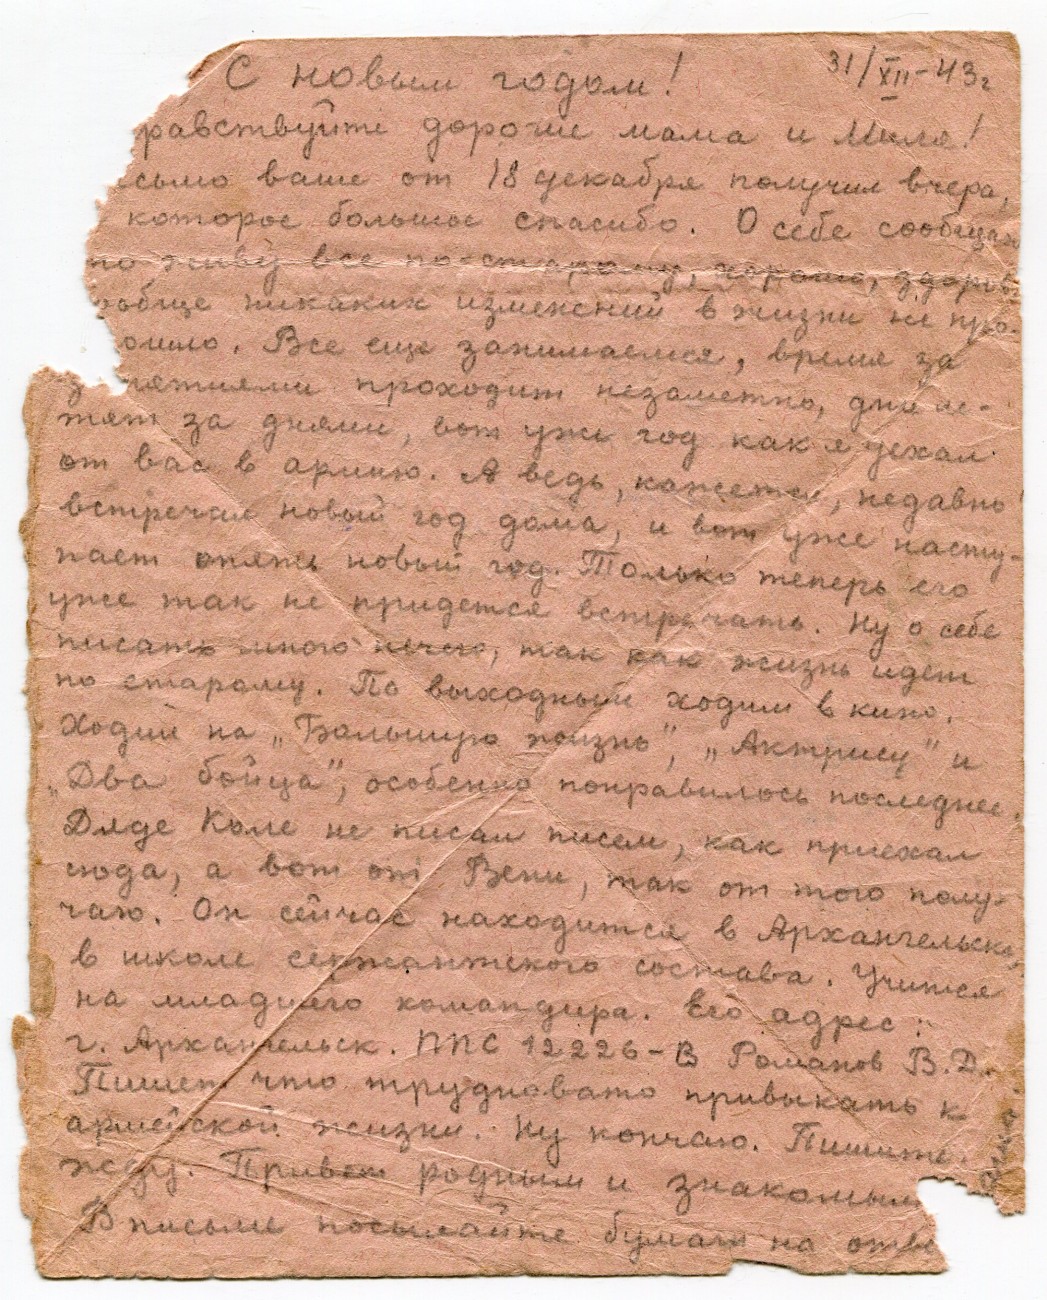 С новым годом! 31/XII-43г
равствуйте дорогие мама и Миля!
сьмо ваше от 18 декабря получил вчера,
которое большое спасибо. О себе сообщаю
то живу все по-старому, хорошо, здоров
ообще никаких изменений в жизни не про-
ошло. Все еще занимаемся, время за
з нятиями проходит незаметно, дни ле-
тят за днями, вот уже год как я уехал
от вас в армию. А ведь, кажется, недавно
встречал новый год дома, и вот уже насту-
пает опять новый год. Только теперь его
уже так не придется встречать. Ну о себе
писать много нечего, так как жизнь идет
по старому. По выходным ходим в кино.
Ходили на „Большую жизнь", „Актрису" и
„Два бойца", особенно понравилось последнее.
Дяде Коле не писал писем, как приехал
сюда, а вот от Вени, так от того полу-
чаю. Он сейчас находится в Архангельске,
в школе сержантского состава. Учится
на младшего командира. Его адрес:
г. Архангельск. ППС 12226-В Романов В.Д.
Пишет что трудновато привыкать к
армейской жизни. Ну кончаю. Пишите.
жду. Привет родным и знакомым
В письме посылайте бумаги на отве